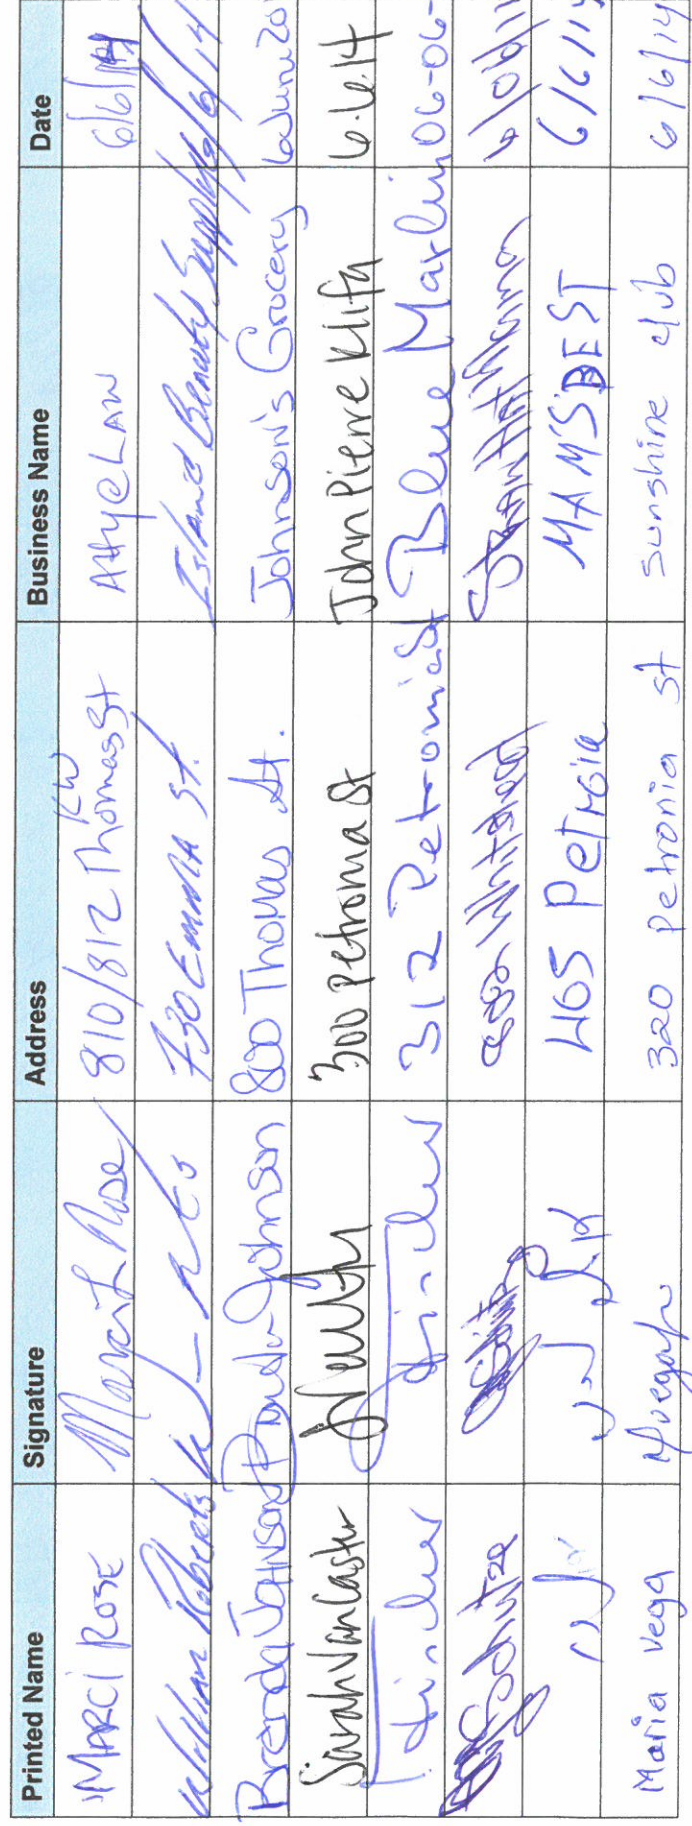 Printed Name Signature Address Business Name Date
MARCI ROSE Marci L Rose 810/812 Thomas St KW Atty@LAW 6/6/14
William Roberts 730 EMMA St. Island Beauty Supply 6/6/14
Brenda Johnson Brenda Johnson 800 Thomas St. Johnson's Grocery 6 June 20
Sarah VanCaster 300 petronia St John Pierre Klifa 6.6.14
312 Petronia St Blue Marlin 06-06-
Schultze Whitehead 6/06/1
465 Petroia MAMS BEST 6/6/14
Maria Vega Mvega 320 petronia st sunshine club 6/6/14